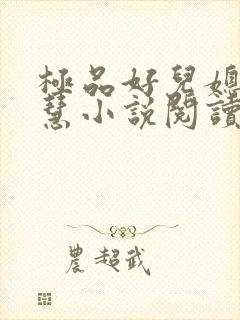 極品好兒媳
慧小說閱讀
農超武